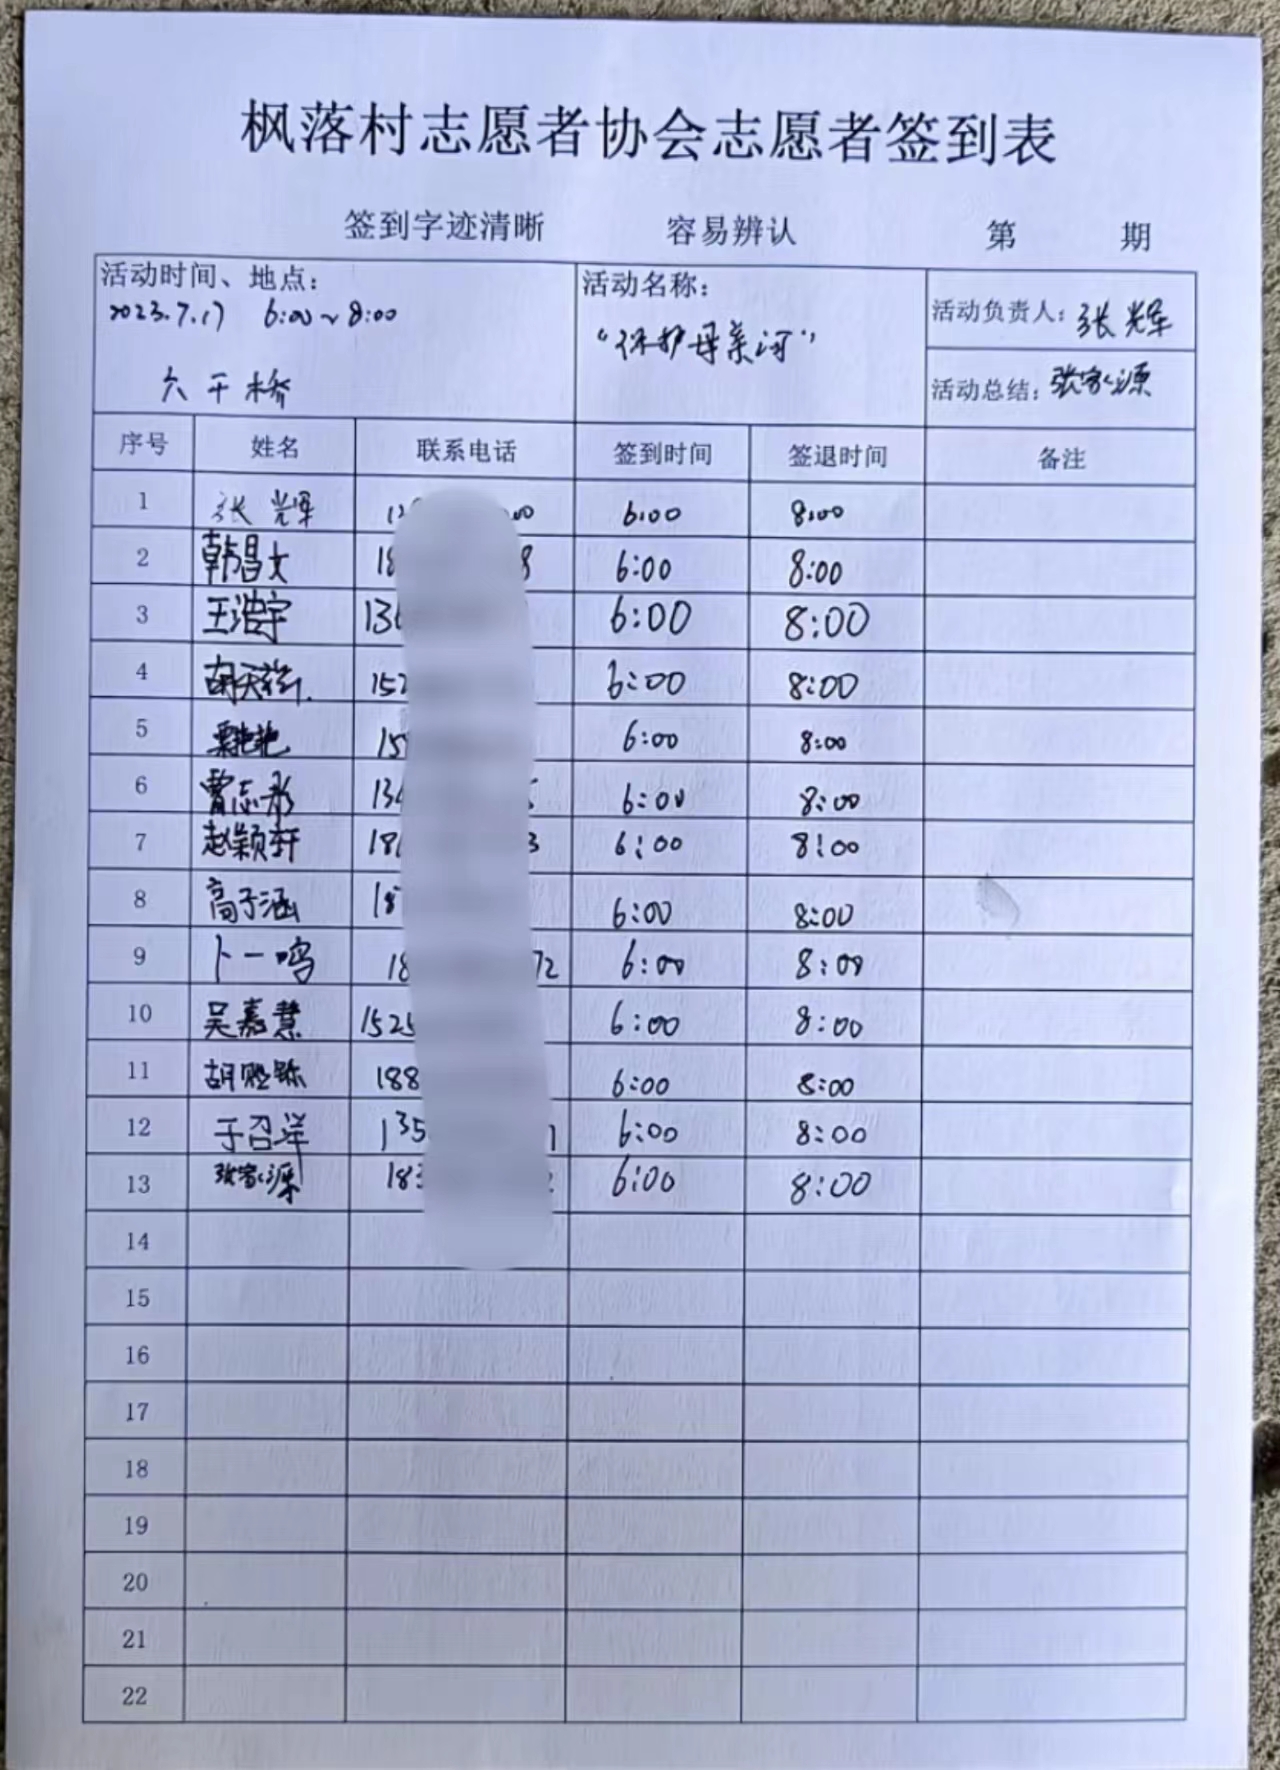 枫落村志愿者协会志愿者签到表
签到字迹清晰 容易辨认 第 期
活动时间、地点: 活动名称: 活动负责人: 张辉
2023.7.17 6:00~8:00 "保护母亲河"
六干桥 活动总结: 张家源
序号 姓名 联系电话 签到时间 签退时间 备注
1 张辉 6:00 8:00
2 韩昌文 18 8 6:00 8:00
3 王浩宇 136 6:00 8:00
4 胡天 152 6:00 8:00
5 15 6:00 8:00
6 曹志彤 134 6:00 8:00
7 赵颖轩 18 3 6:00 8:00
8 高子涵 18 6:00 8:00
9 卜一鸣 18 72 6:00 8:00
10 吴嘉慧 1525 6:00 8:00
11 胡 188 6:00 8:00
12 于召洋 135 1 6:00 8:00
13 张家源 183 2 6:00 8:00
14
15
16
17
18
19
20
21
22